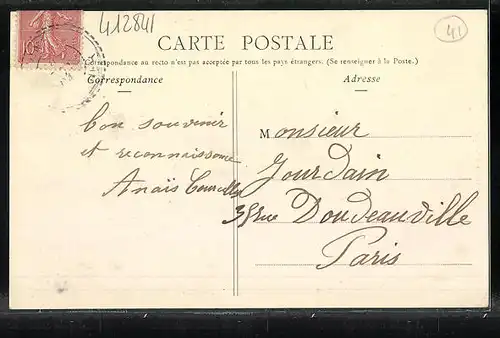 412841
41
10
CARTE POSTALE
Correspondance au recto n'est pas acceptée par tous les pays étrangers. (Se renseigner à la Poste.)
Correspondance
Adresse
bon souvenir
et reconnaissance
Anaïs
Monsieur
Jourdain
35 rue Doudeauville
Paris